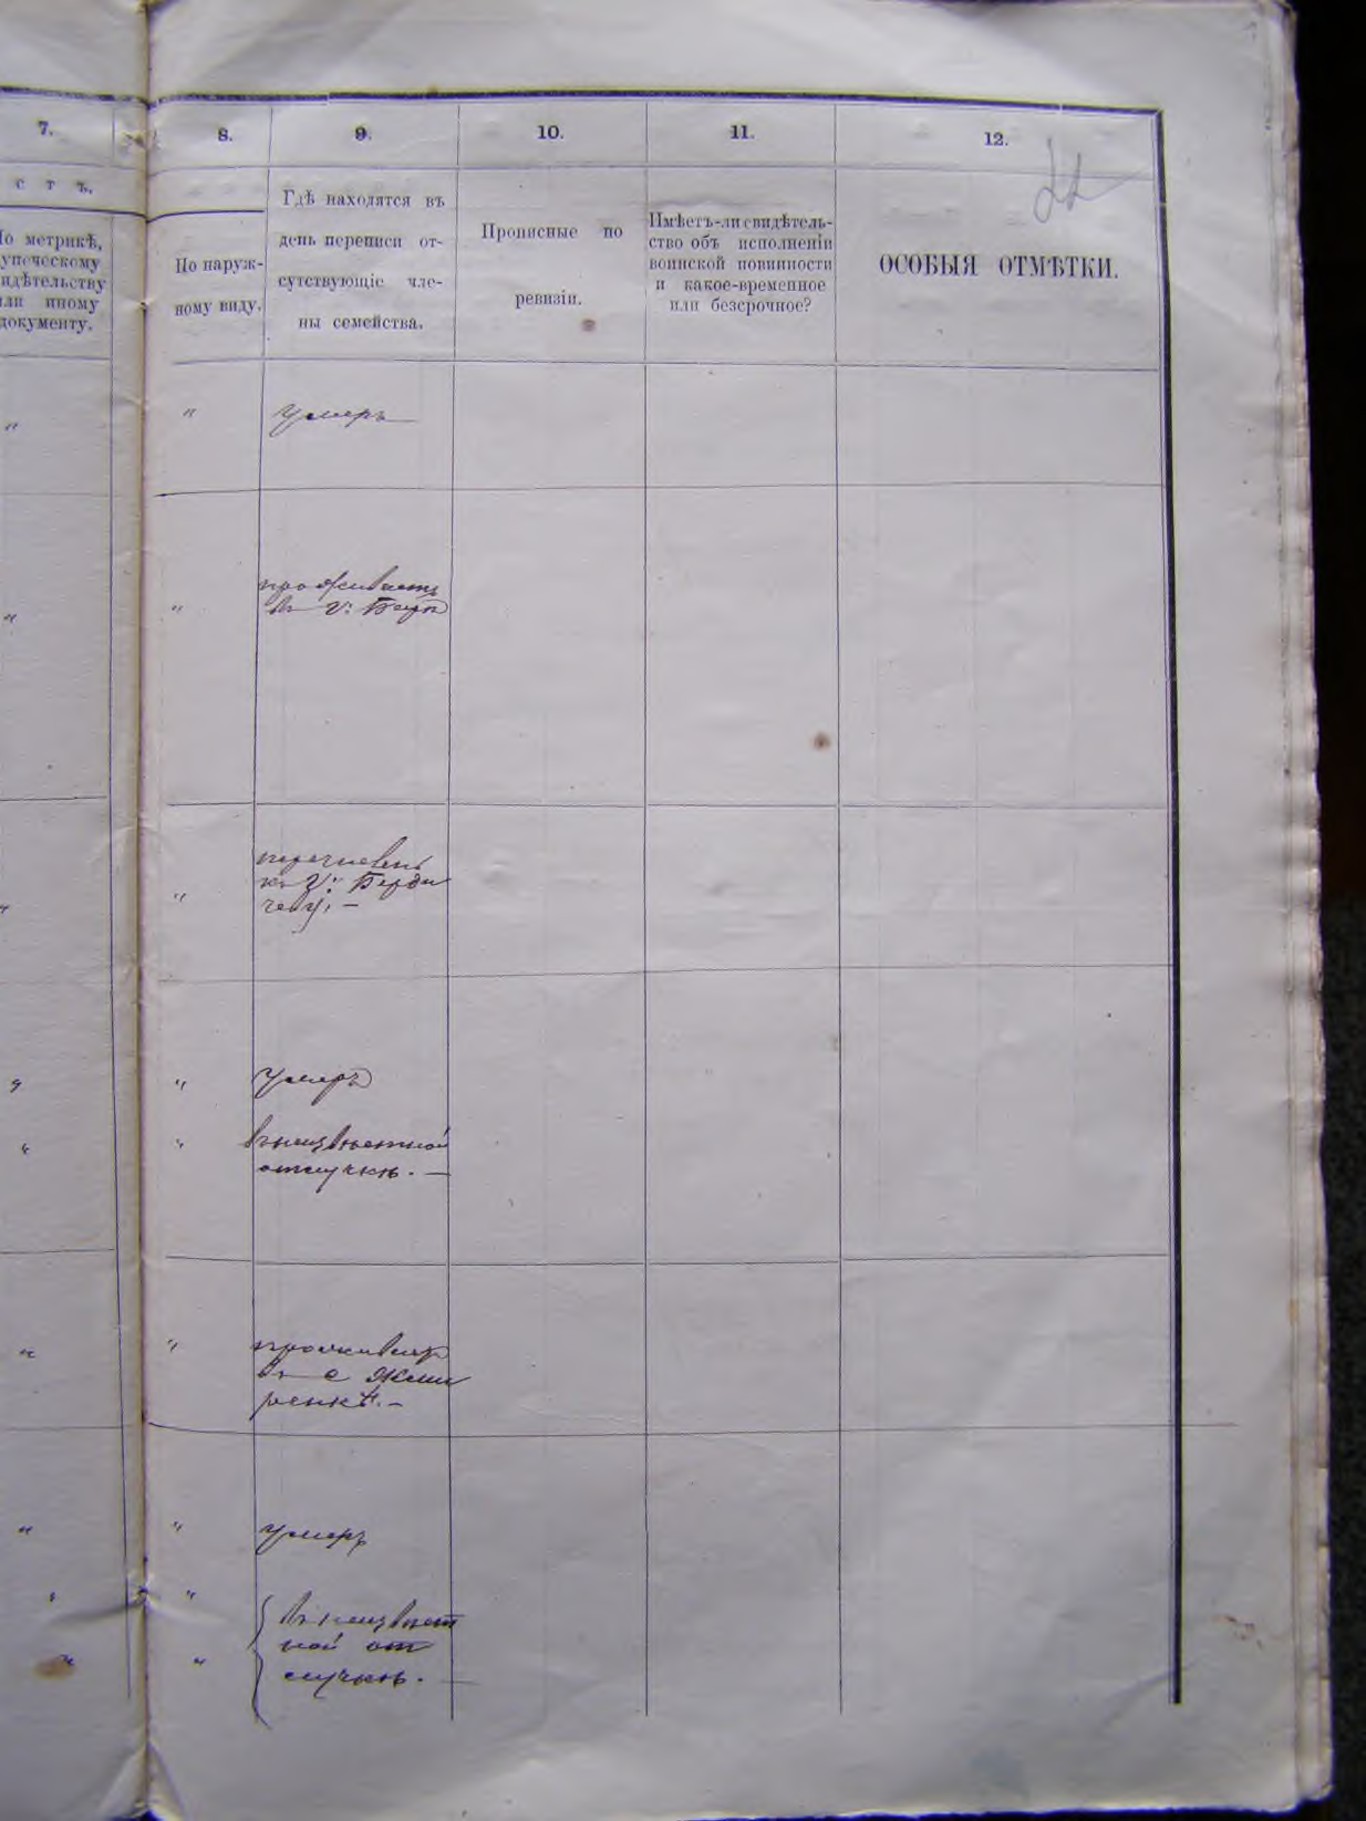 7.
8.
9.
10.
11.
12.
с т ъ.
По метрикѣ,
купеческому
свидѣтельству
или иному
документу.
По наруж-
ному виду.
Гдѣ находятся въ
день переписи от-
сутствующіе чле-
ны семейства.
Прописные по
ревизіи.
Имѣетъ-ли свидѣтель-
ство объ исполненіи
воинской повинности
и какое-временное
или безсрочное?
ОСОБЫЯ ОТМѢТКИ.
" " умеръ
проживаетъ
" " въ г:
перечисленъ
къ г: Берди
" " чеву. —
" " умеръ
" " въ неизвѣстной
отлучкѣ. —
" "
въ с
ренкѣ. —
" " умеръ
" " въ неизвѣст
ной от
" " лучкѣ. —